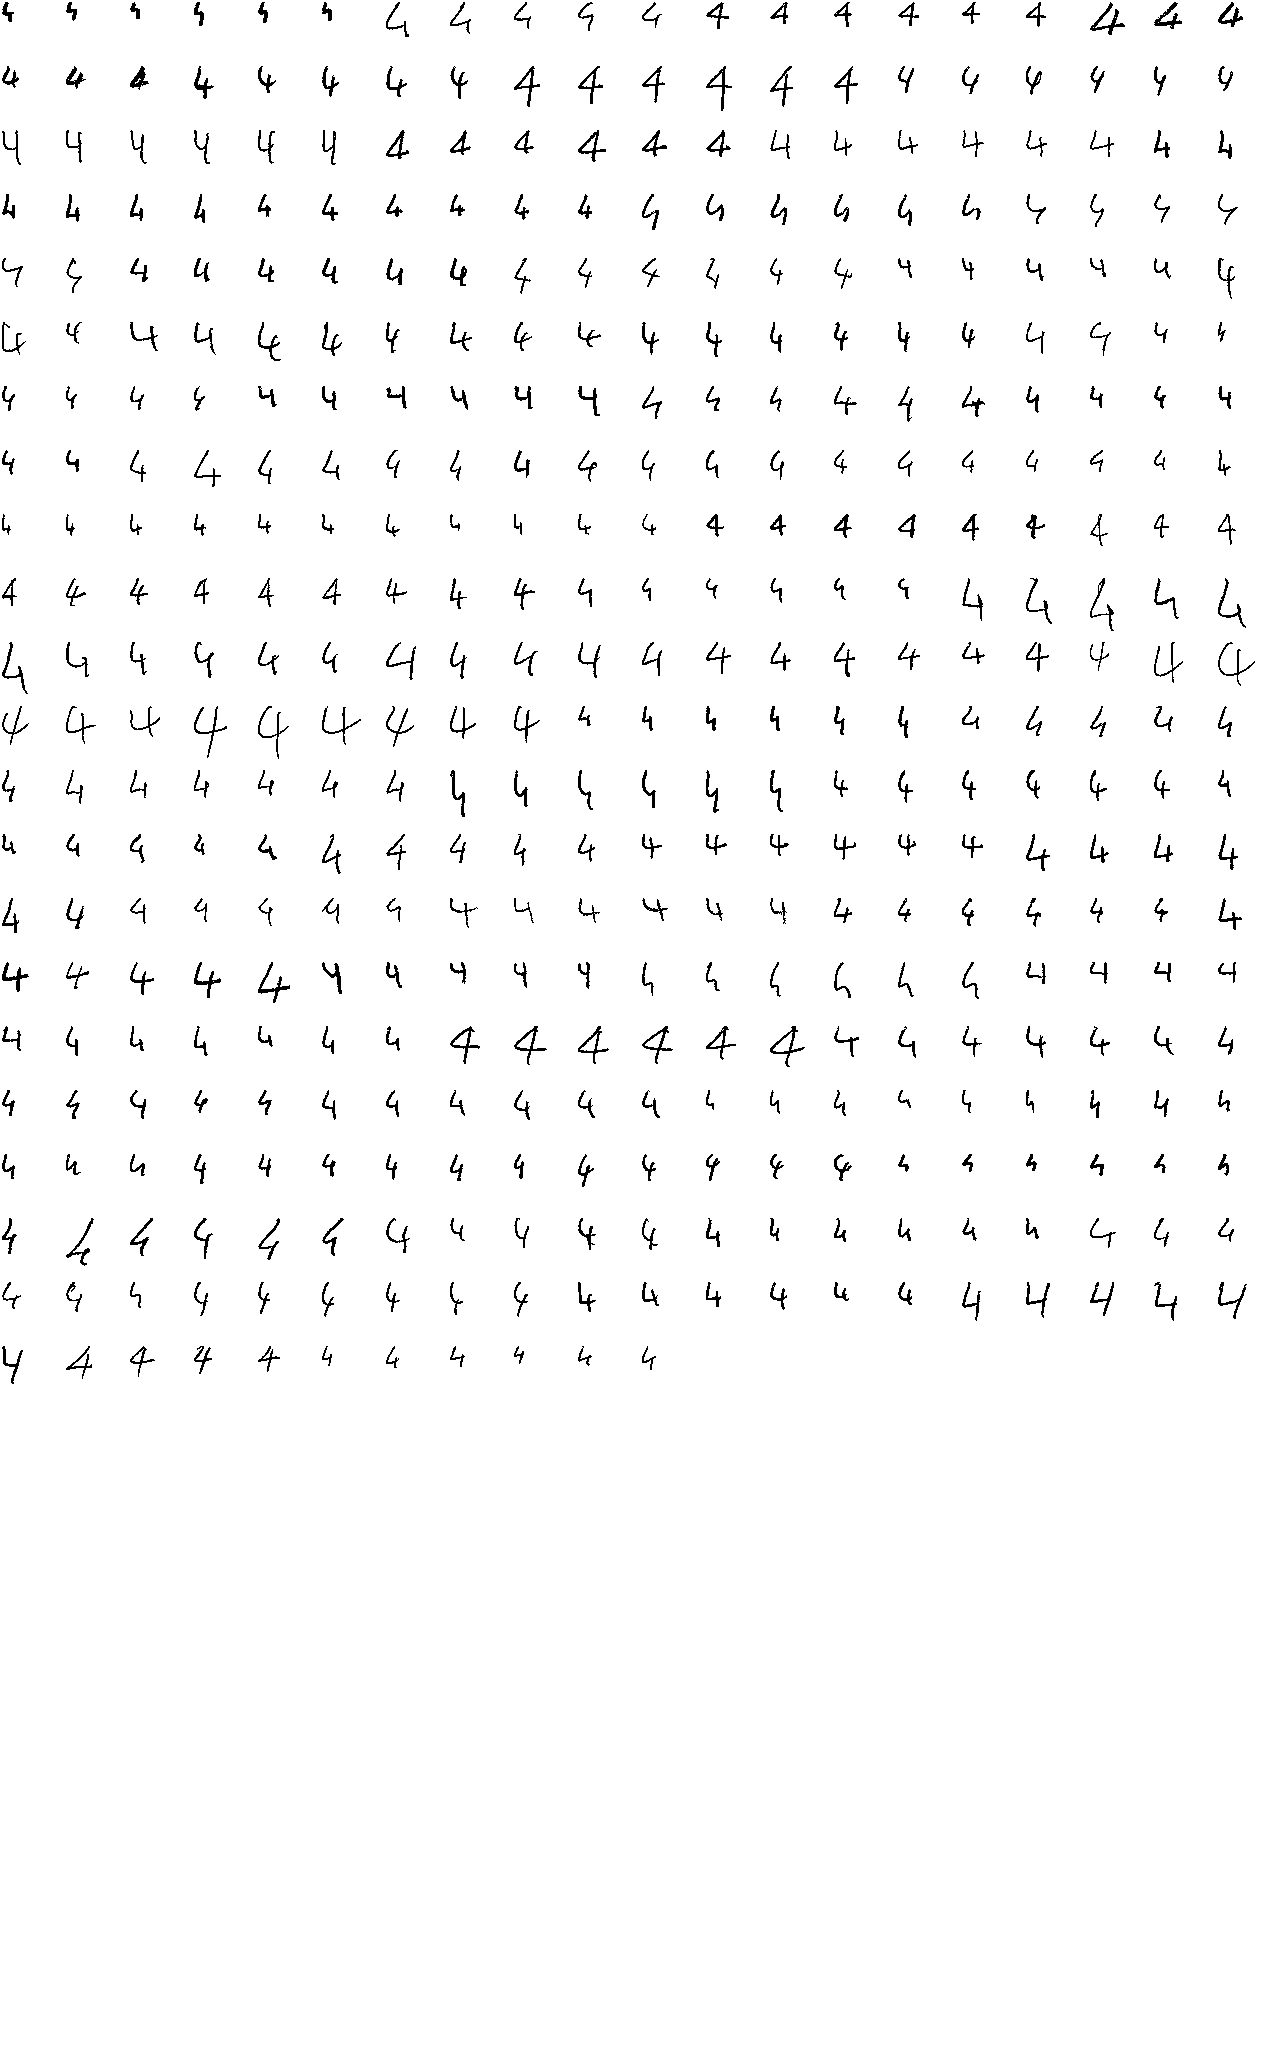 4 4 4 4 4 4 4 4 4 4 4 4 4 4 4 4 4 4 4 4
4 4 4 4 4 4 4 4 4 4 4 4 4 4 4 4 4 4 4 4
4 4 4 4 4 4 4 4 4 4 4 4 4 4 4 4 4 4 4 4
4 4 4 4 4 4 4 4 4 4 4 4 4 4 4 4 4 4 4 4
4 4 4 4 4 4 4 4 4 4 4 4 4 4 4 4 4 4 4 4
4 4 4 4 4 4 4 4 4 4 4 4 4 4 4 4 4 4 4 4
4 4 4 4 4 4 4 4 4 4 4 4 4 4 4 4 4 4 4 4
4 4 4 4 4 4 4 4 4 4 4 4 4 4 4 4 4 4 4 4
4 4 4 4 4 4 4 4 4 4 4 4 4 4 4 4 4 4 4 4
4 4 4 4 4 4 4 4 4 4 4 4 4 4 4 4 4 4 4 4
4 4 4 4 4 4 4 4 4 4 4 4 4 4 4 4 4 4 4 4
4 4 4 4 4 4 4 4 4 4 4 4 4 4 4 4 4 4 4 4
4 4 4 4 4 4 4 4 4 4 4 4 4 4 4 4 4 4 4 4
4 4 4 4 4 4 4 4 4 4 4 4 4 4 4 4 4 4 4 4
4 4 4 4 4 4 4 4 4 4 4 4 4 4 4 4 4 4 4 4
4 4 4 4 4 4 4 4 4 4 4 4 4 4 4 4 4 4 4 4
4 4 4 4 4 4 4 4 4 4 4 4 4 4 4 4 4 4 4 4
4 4 4 4 4 4 4 4 4 4 4 4 4 4 4 4 4 4 4 4
4 4 4 4 4 4 4 4 4 4 4 4 4 4 4 4 4 4 4 4
4 4 4 4 4 4 4 4 4 4 4 4 4 4 4 4 4 4 4 4
4 4 4 4 4 4 4 4 4 4 4 4 4 4 4 4 4 4 4 4
4 4 4 4 4 4 4 4 4 4 4